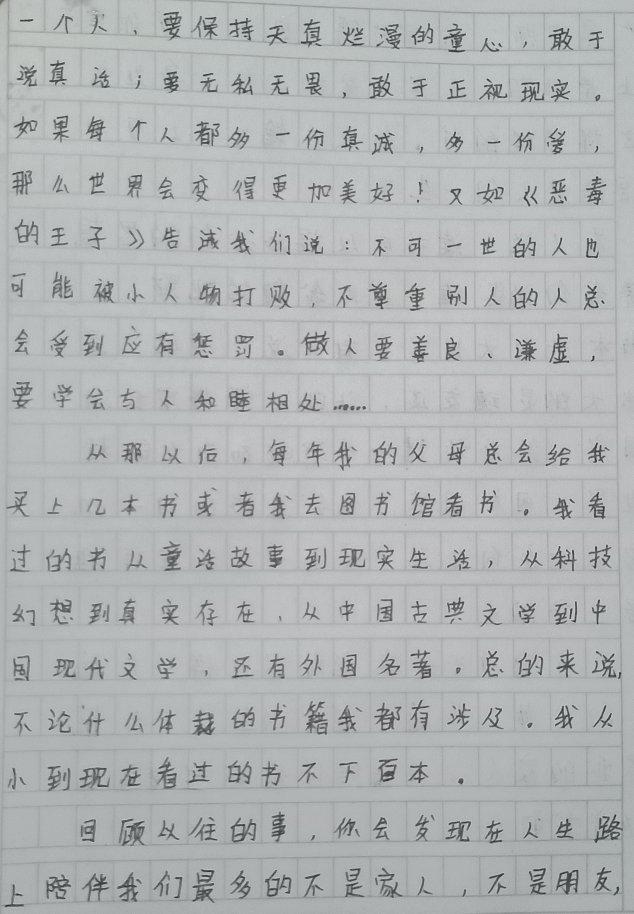 一个人，要保持天真烂漫的童心，敢于
说真话；要无私无畏，敢于正视现实。
如果每个人都多一份真诚，多一份爱，
那么世界会变得更加美好！又如《恶毒
的王子》告诫我们说：不可一世的人也
可能被小人物打败，不尊重别人的人总
会受到应有惩罚。做人要善良、谦虚，
要学会与人和睦相处……
从那以后，每年我的父母总会给我
买上几本书或者我去图书馆看书。我看
过的书从童话故事到现实生活，从科技
幻想到真实存在，从中国古典文学到中
国现代文学，还有外国名著。总的来说，
不论什么体裁的书籍我都有涉及。我从
小到现在看过的书不下百本。
回顾以往的事，你会发现在人生路
上陪伴我们最多的不是家人，不是朋友，